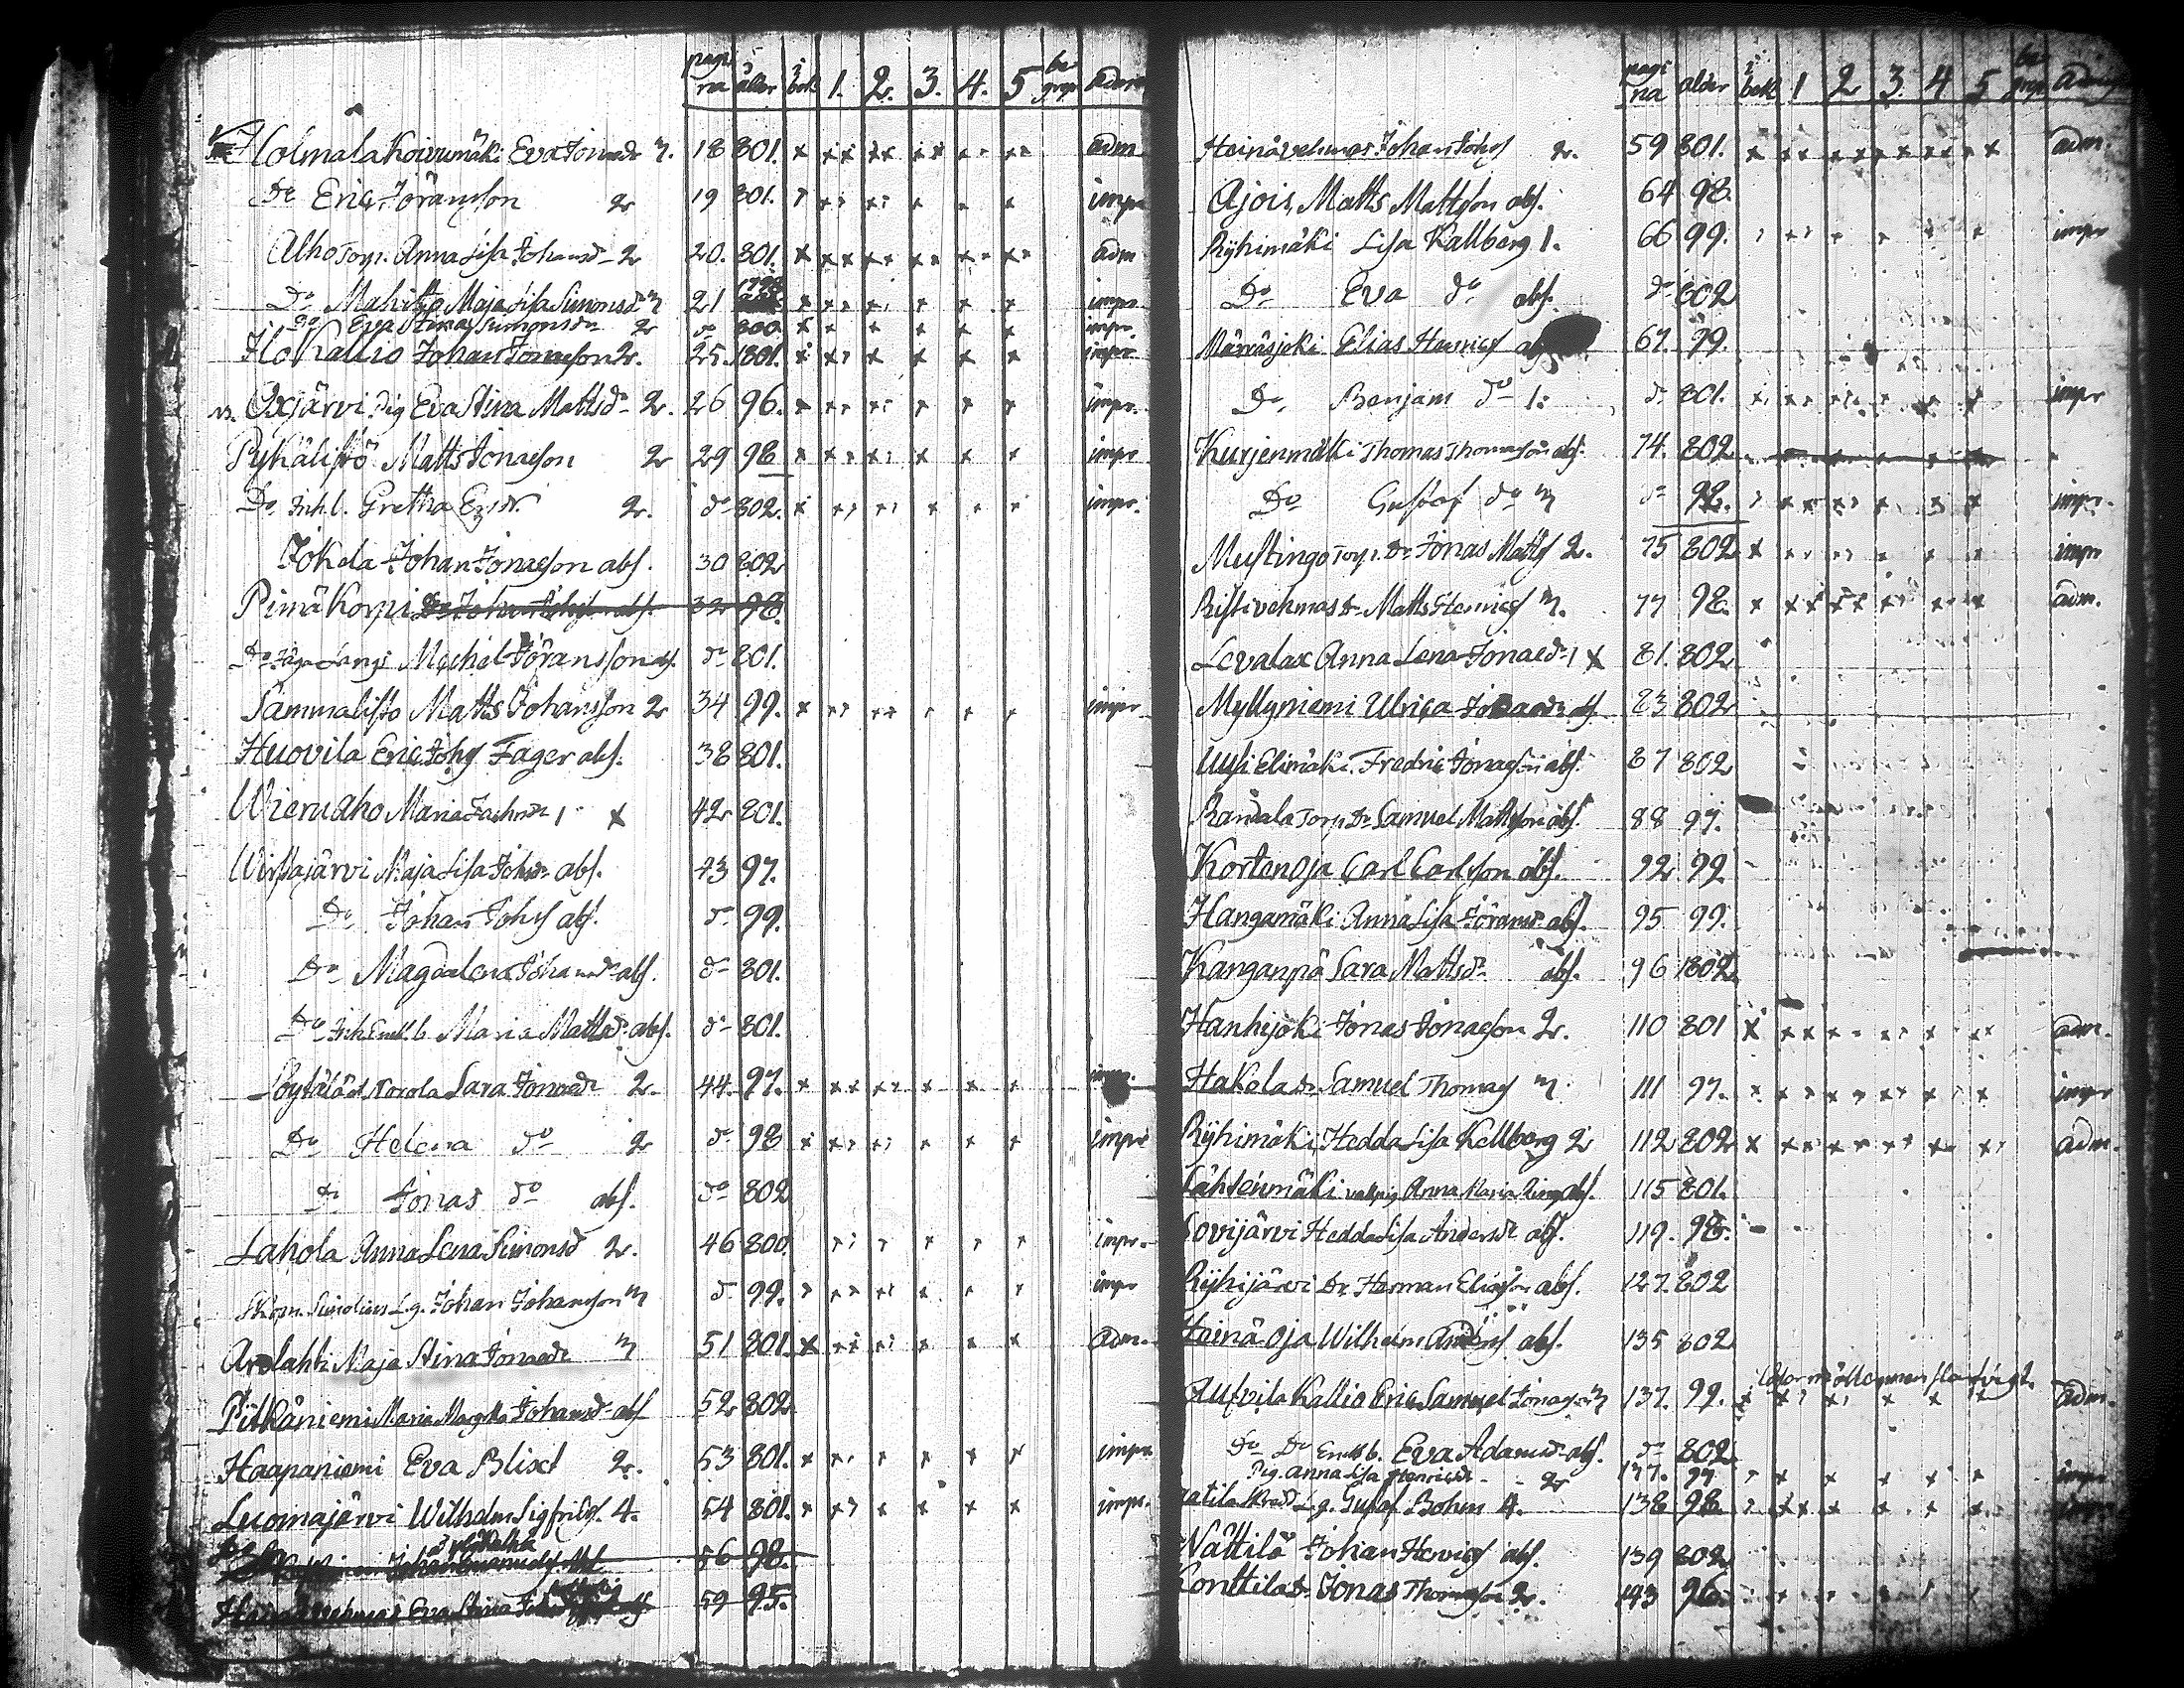 pagina ålder i bok 1. 2. 3. 4. 5 begrep adm
Holmala Koivumäki Eva Jonaed 3. 18 801. adm
Do Eric Jöransson 2 19 801. impr
Alho Torp. Anna Lisa Johansd 2 20. 801. adm
Do Mahitto Maja Lisa Simonsd 3 21 1798 impr.
Do Eva Stina Simonsdr 2 do 800 impr.
Ilo Kallio Johan Jonasson 2. 25. 1801. impr
Oxjärvi Pig Eva Stina Mattsd 2. 26 96. impr.
Pyhälistö Matts Jonasson 2 29 98 impr
Do Inh. l. Gretha Ersdr 2. do 802. impr.
Jokela Johan Jonasson abs. 30 802
Pimäkorpi 32 98.
Do Michel Jöransson abs. do 801.
Sammalisto Matts Johansson 2 34 99. impr
Huovila Eric Johs Fager abs. 38 801.
Wieruaho Maria 1 x 42 801.
Wirsajärvi Maja Lisa Johsdr abs. 43 97.
Do Johan Johss abs. do 99.
Do Magdalena Johansd abs. do 801.
Do Inh. Enkl. b Maria Mattsd abs. do 801.
Löytälä Sara Jonaed 2. 44. 97.
Do Helena do 2 do 98 impr
Do Jonas do abs. do 802
Lahola Anna Lena Simonsd 2. 46 800. impr.
L.g. Johan Johansson 3 do 99. impr
Arolahti Maja Stina Jonaed 3 51 801. adm.
Pitkäniemi Maria Margetha Johansd abs 52 802
Haapaniemi Eva Blixt 2. 53 801. impr
Luomajärvi Wilhelm Sigfrids. 4. 54 801. impr.
Johan Emanuels. abs 56 98.
Heinävehmas Eva Stina 59 95.
pagina ålder i bok 1 2 3 4 5 begrep adm
Heinävehmas Johan Johss 2. 59 801. adm.
Ajois Matts Mattsson abs. 64 98.
Ryhimäki Lisa Kallberg 1. 66 99. impr
Do Eva do abs. do 802
Märräsjoki Elias Henrics 67. 99.
Do Benjam do 1. do 801. impr
Kurjenmäki Thomas Thomasson abs. 74. 802
Do Gustaf do 3 do 98. impr.
Mustingo Torp. Dr Jonas Matts 2. 75 802 impr
Ristivehmas Dr Matts Henrics 3. 77 98. adm.
Levalax Anna Lena Jonaed 1 x 81. 802
Myllyniemi Ulrica abs. 83 802
Uusi Elimäki Fredric Jonasson abs. 87 802
Randala Torp Dr Samuel Mattsson abs. 88 97.
Kortenoja Carl Carlsson abs. 92 99.
Hangamäki Anna Lisa Jöransd abs. 95 99.
Kanganpä Sara Mattsd abs. 96 1802
Hanhijoki Jonas Jonasson 2. 110 801 adm.
Hakola Dr Samuel Thomass 3 111 97. impr
Ryhimäki Hedda Lisa Kellberg 2 112 802 adm.
Lähtenmäki Anna Maria abs. 115 801.
Sovijärvi Hedda Lisa Andersdr abs. 119. 98.
Ryhijärvi Dr. Herman Eliasson abs. 127. 802
Heinä Oja Wilhelm Anders abs. 135 802
Kallio Eric Samuel Jonasson 3 137. 99. adm.
Do Do Enkl. b. Eva Adamsdr abs. do 802
Pig. Anna Lisa Henricsdr 2 137. 97
L.g. Gustaf Bohm 4. 138 98
Wättilä Johan Henrics abs. 139 802
Konttila Dr. Jonas Thomasson 2. 143 96.